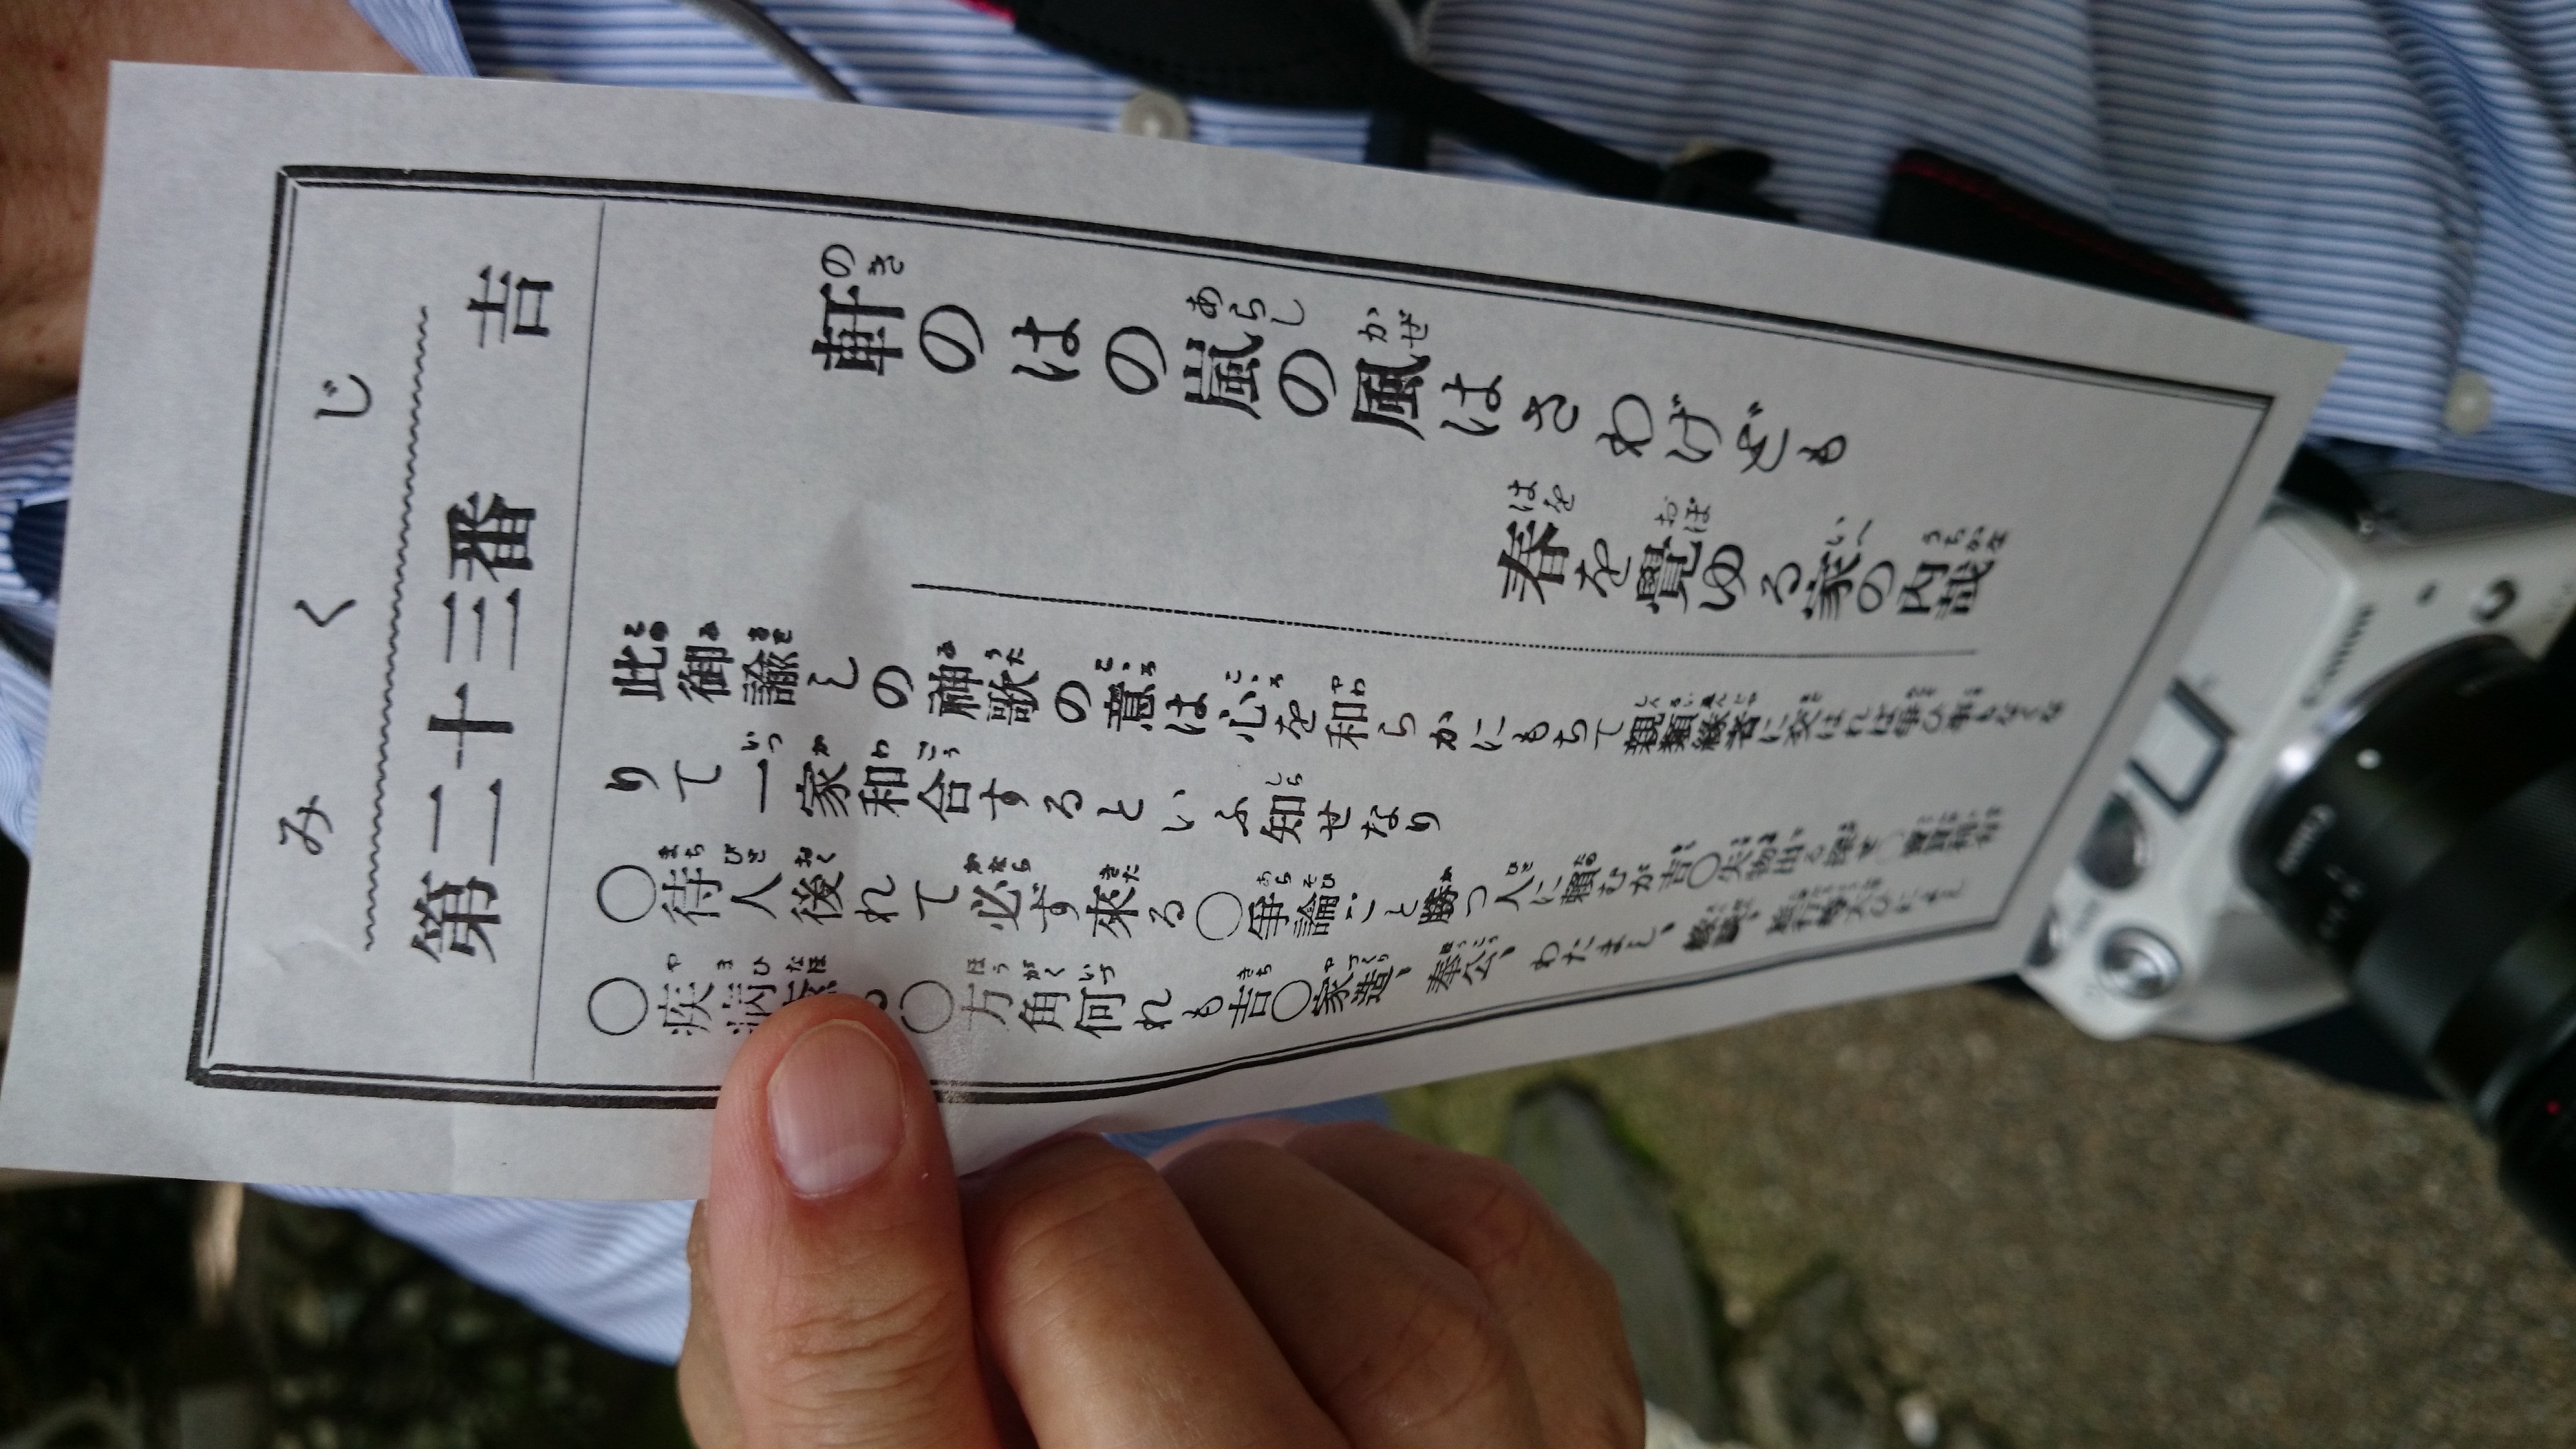 みくじ
第二十三番 吉
軒のはの嵐の風はさわげども
春を覺ゆる家の内哉
此御諭しの神歌の意は心を和らかにもちて親類縁者に交はれば爭ひ事もなくな
りて一家和合するといふ知せなり
○待人後れて必ず來る○爭論ごと勝つ人に頼むが吉○失物出る
○疾病○方角何れも吉○家造、奉公、わたまし、
Canon